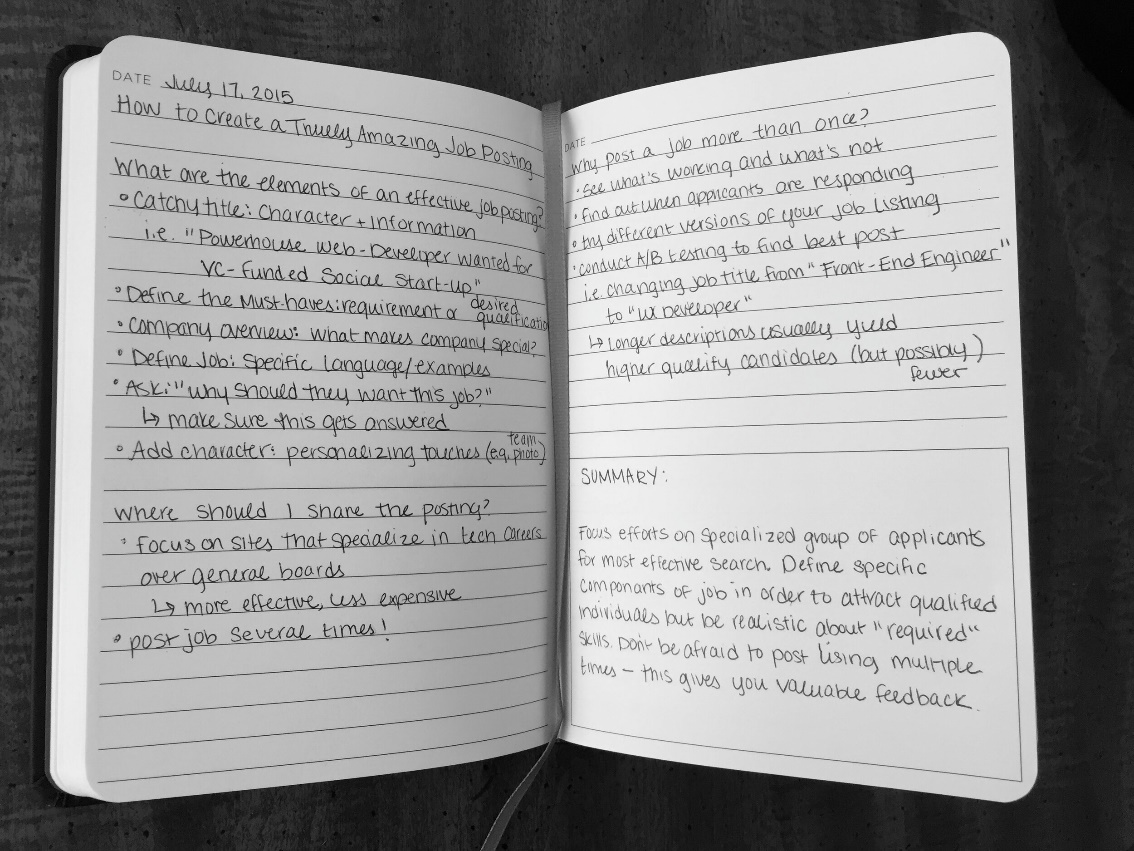 DATE July 17, 2015
How to Create a Truely Amazing Job Posting
What are the elements of an effective job posting?
• Catchy title: Character + Information
i.e. "Powerhouse Web-Developer wanted for
VC-Funded Social Start-up"
• Define the Must-haves: requirement or desired qualification
• Company overview: what makes company special?
• Define Job: Specific Language/examples
• Ask: "Why should they want this job?"
↳ make sure this gets answered
• Add character: personalizing touches (e.g. team photo)
Where should I share the posting?
• Focus on sites that specialize in tech careers
over general boards
↳ more effective, less expensive
• post job several times!
DATE
Why post a job more than once?
• See what's working and what's not
• find out when applicants are responding
• try different versions of your job listing
• conduct A/B testing to find best post
i.e changing job title from "Front-End Engineer"
to "UX Developer"
↳ Longer descriptions usually yield
higher quality candidates (but possibly fewer)
SUMMARY:
Focus efforts on specialized group of applicants
for most effective search. Define specific
componants of job in order to attract qualified
individuals but be realistic about "required"
skills. Don't be afraid to post lising multiple
times - this gives you valuable feedback.